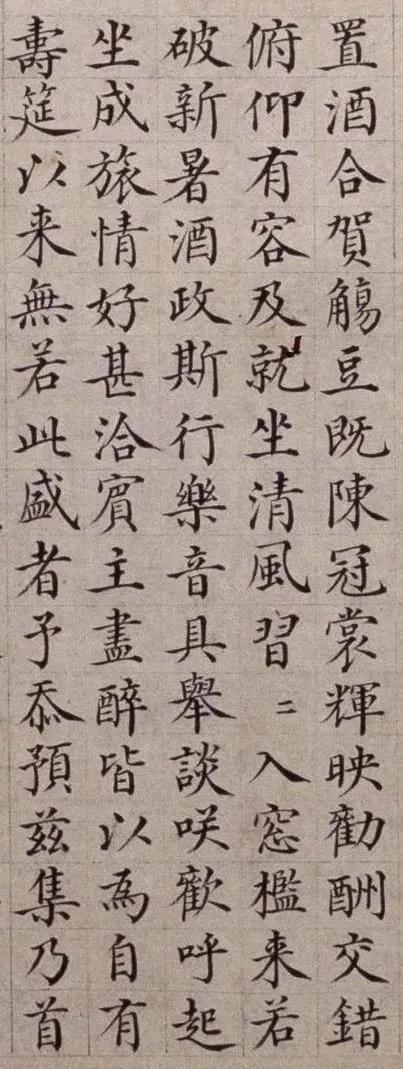 置酒合賀觴豆既陳冠裳輝映勸酬交錯
俯仰有容及就坐清風習〻入窓檻来若
破新暑酒政斯行樂音具舉談咲歡呼起
坐成旅情好甚洽賓主盡醉皆以為自有
壽筵以来無若此盛者予忝預茲集乃首